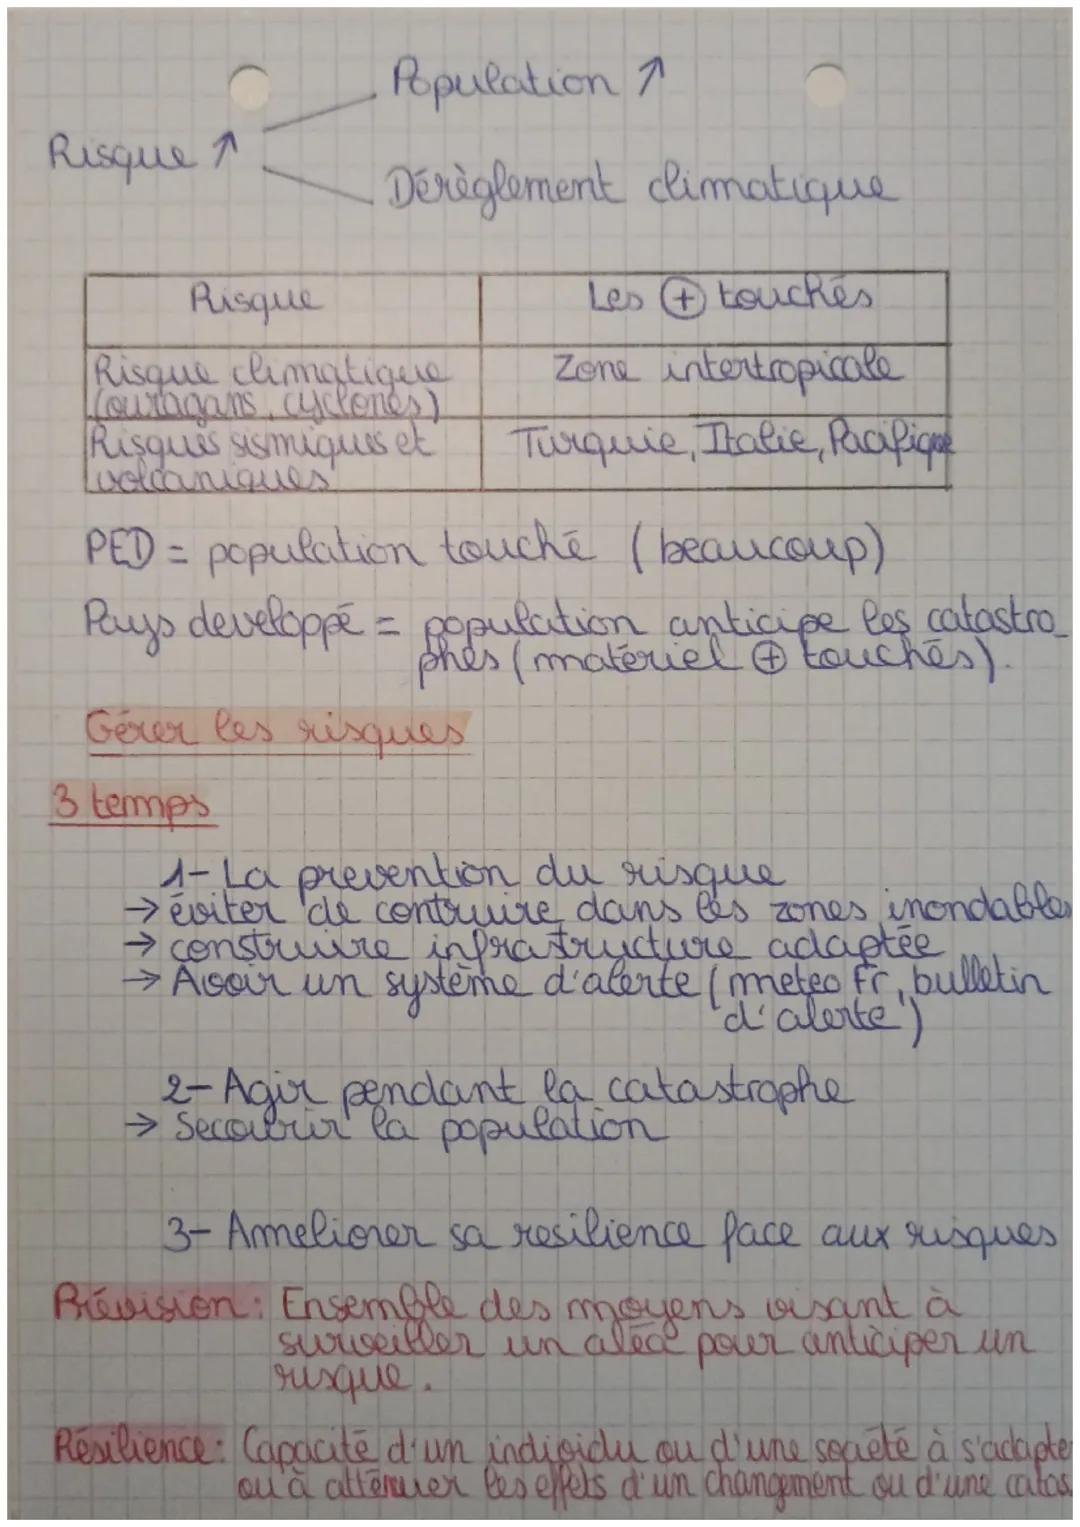 Population ↑
Risque ↑
Dérèglement climatique
Risque
Les ⊕ touchés
Risque climatique
(ouragans, cyclones)
Zone intertropicale
Risques sismiques et
volcaniques
Turquie, Italie, Pacifique
PED = population touché (beaucoup)
Pays developpé = population anticipe les catastro_
phes (matériel ⊕ touchés).
Gérer les risques
3 temps
1- La prevention du risque
→ éviter de contruire dans les zones inondables
→ construire infrastructure adaptée
→ Avoir un système d'alerte (meteo Fr, bulletin
d'alerte)
2- Agir pendant la catastrophe
→ Secourir la population
3- Ameliorer sa resilience face aux risques
Prévision: Ensemble des moyens visant à
surveiller un aléa pour anticiper un
risque.
Résilience: Capacité d'un individu ou d'une société à s'adapte
ou à atténuer les effets d'un changement ou d'une catas